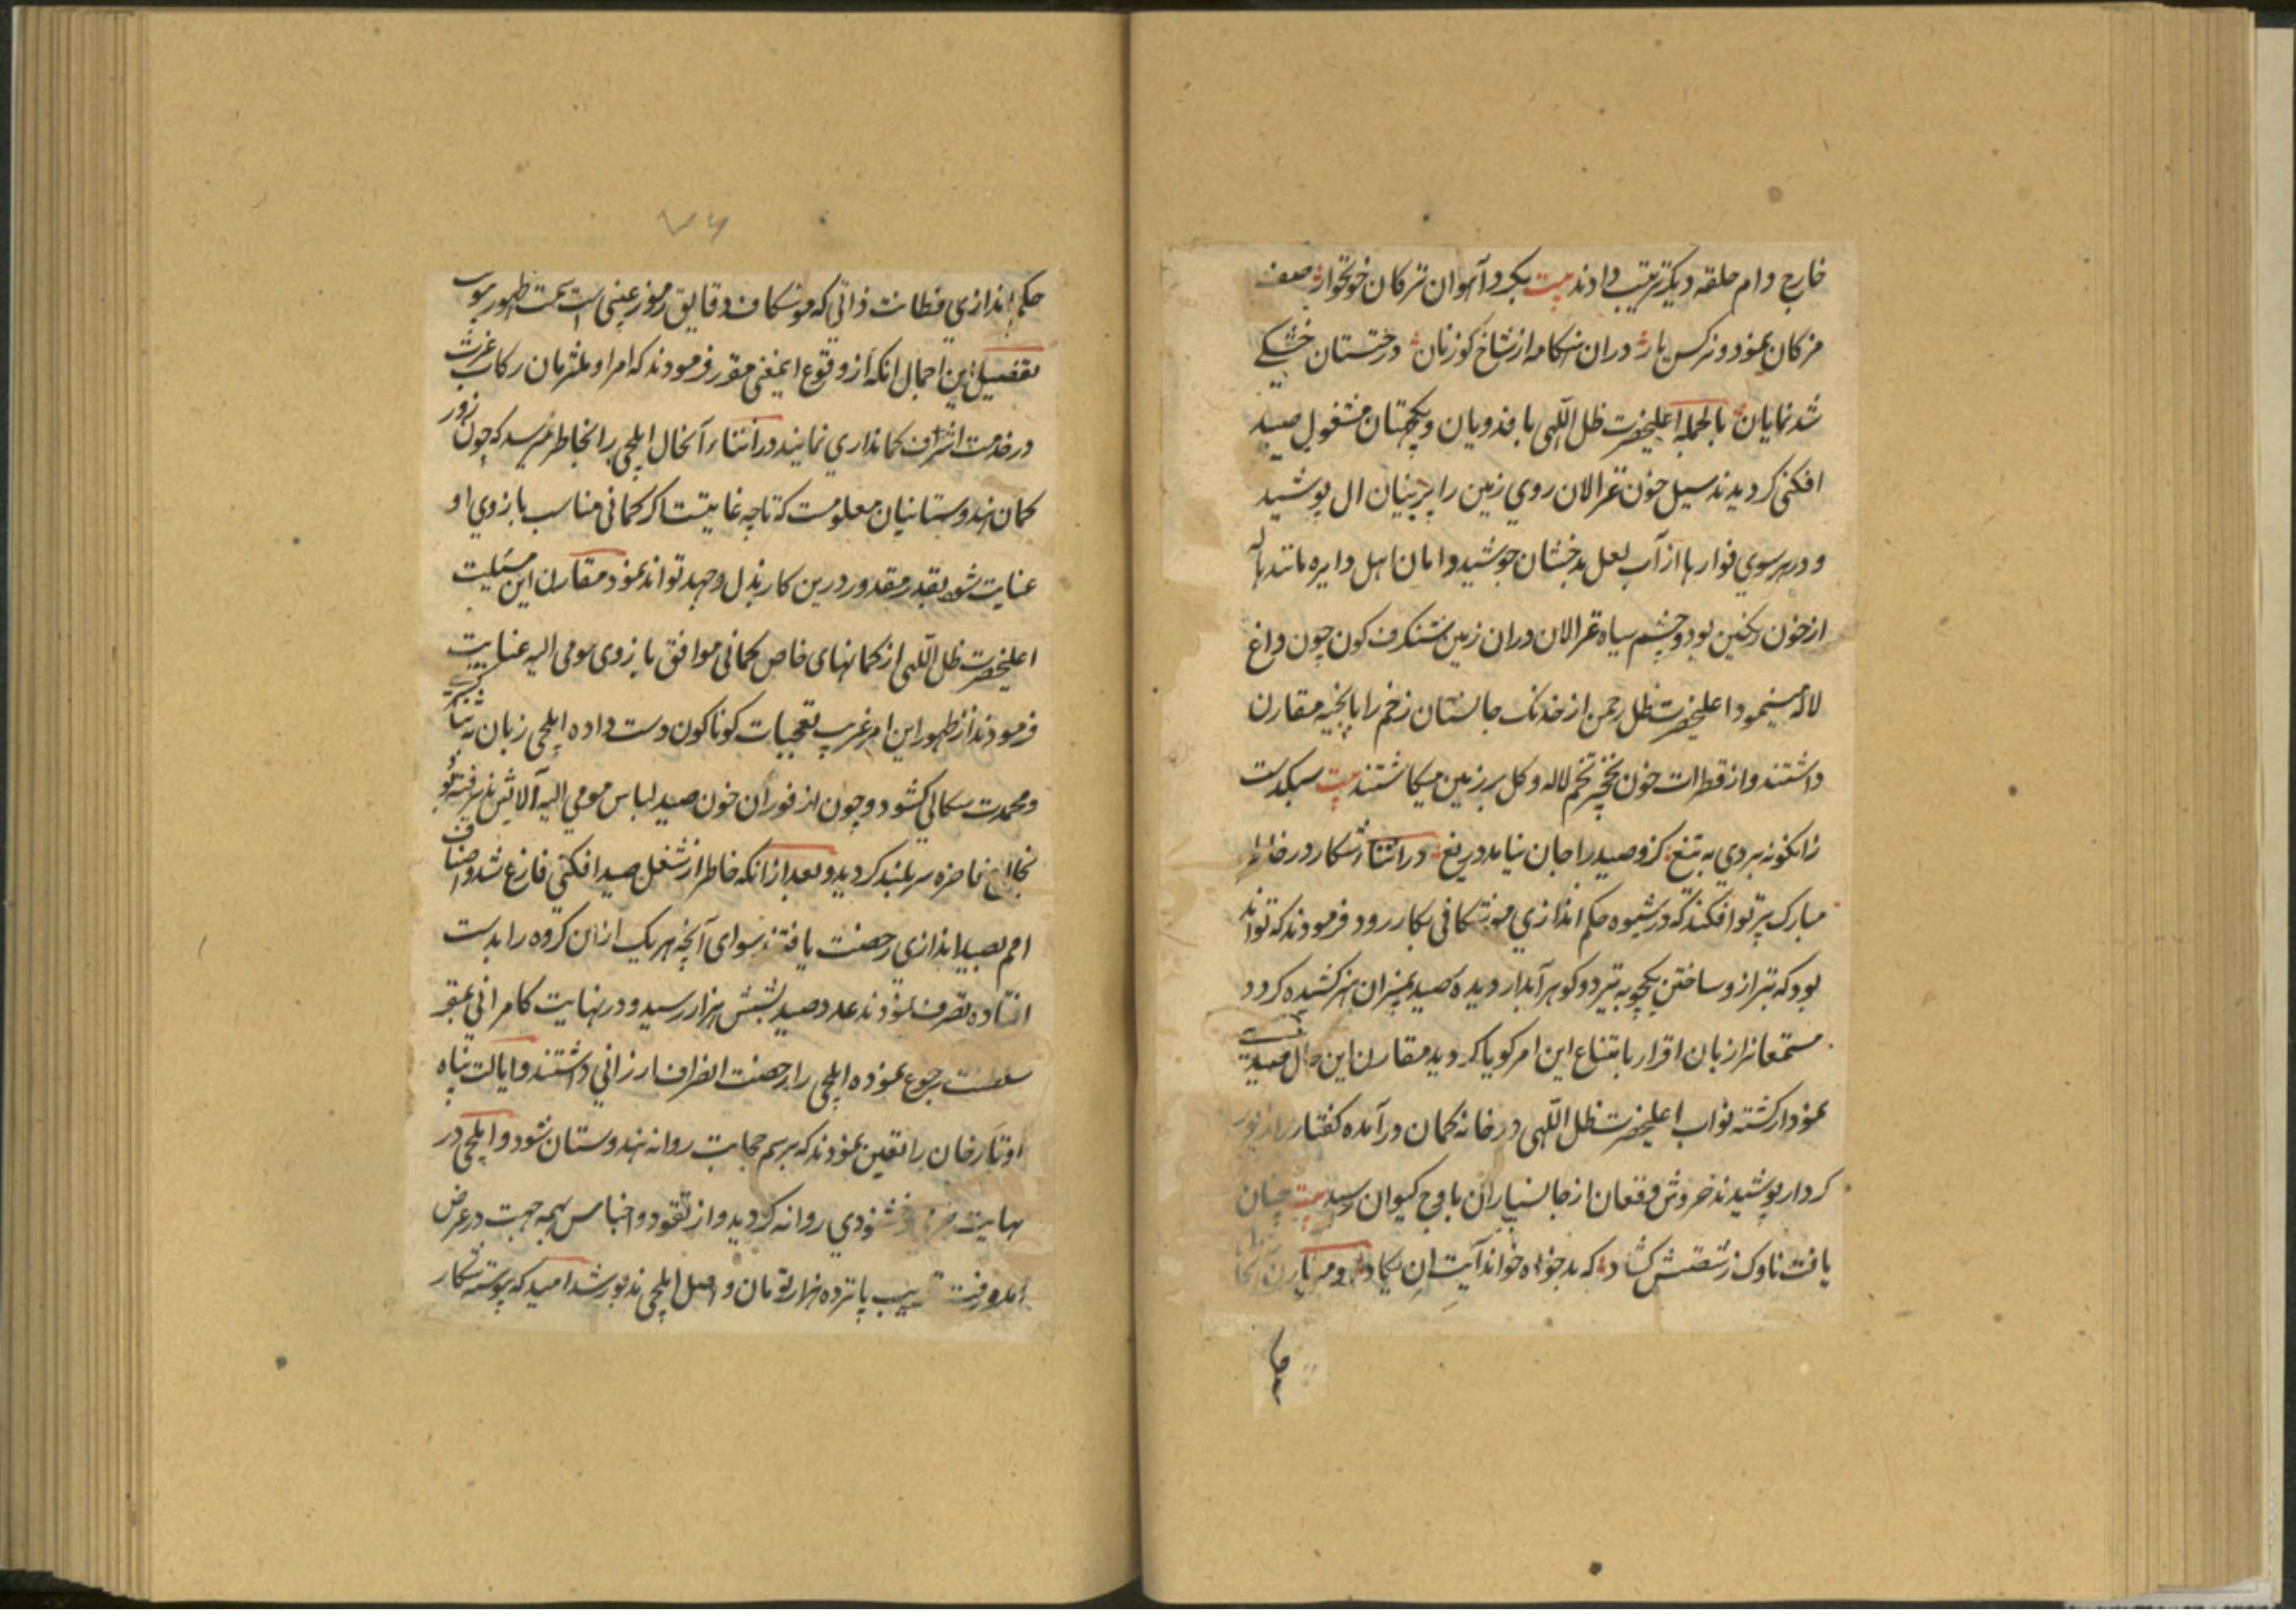 خارج دام حلقه دیکر ترتیب دادند بیت بکرد آهوان ترکان خونخوار صف
مژکان نمود و نرکس یار دران هنکامه از شاخ کوزنان درختستان خشکی
شد نمایان بالجمله اعلیحضرت ظل اللهی با فدویان و یکجهتان مشغول صید
افکنی کردیدند سیل خون غزالان روی زمین را پرنیان ال پوشید
و در هر سوی فوارها از آب لعل بدخشان جوشید دامان اهل دایره مانند هاله
از خون رنکین بود و چشم سیاه غزالان دران زمین شنکرف کون چون داغ
لاله مینمود اعلیحضرت ظل رحمن از خدنک جانستان زخم را با بخیه مقارن
داشتند و از قطرات خون نخچیر تخم لاله و کل بر زمین میکاشتند بیت سبکدست
زانکونه بردی به تیغ کزو صید را جان نیاید دریغ در اثناء شکار در خاطر
مبارک پرتو افکند که در شیوه حکم اندازی موشکافی بکار رود فرمودند که تواند
بود که بترازو ساختن یکچوبه تیر دو کوهر آبدار دیده صید بمیزان هنر کشیده کردد
مستمعانرا زبان اقرار بامتناع این امر کویا کردید مقارن این حال صیدی
نمودار کشته نواب اعلیحضرت ظل اللهی در خانه کمان درآمده کفتار را زیور
کردار پوشیدند خروش و فغان از جانسپاران باوج کیوان رسید بیت چنان
یافت ناوک ز شصتش کشاد که بدخواه خواند آیت ان یکاد
حکم اندازی فطانت ذاتی که موشکاف دقایق رموز غیبی است بحیث ظهور پیوست
تفصیل این اجمال انکه از وقوع اینمعنی مقرر فرمودند که امرا و ملتزمان رکاب عزت
در خدمت اشرف کمانداری نمایند در اثناء آنحال ایلچی را بخاطر میرسد که چون زور
کمان هندوستانیان معلومست که تا چه غایتست اکر کمانی مناسب بازوی او
عنایت شود بقدر مقدور درین کار بذل و جهد تواند نمود مقارن این مسئلت
اعلیحضرت ظل اللهی از کمانهای خاص کمانی موافق بازوی مومی الیه عنایت
فرمودند از ظهور این امر غریب تعجبات کوناکون دست داده ایلچی زبان به ثنا کری
و محمدت سکالی کشود و چون از فوران خون صید لباس مومی الیه آلایش پذیرفته بود
بخلع فاخره سربلند کردید و بعد از انکه خاطر از شغل صید افکنی فارغ شد و اصناف
امم بصید اندازی رخصت یافتند سوای آنچه هر یک ازان کروه را بدست
افتاده تصرف نمودند عدد صید بشش هزار رسید و در نهایت کامرانی بمقر
سلطنت رجوع نموده ایلچی را رخصت انصراف ارزانی داشتند و ایالت پناه
اوتار خان را تعین نمودند که برسم حجابت روانه هندوستان شود و ایلچی در
نهایت خشنودی روانه کردید و از نقود و اجناس بهمه جهت در عرض
آمد و رفت قریب پانزده هزار تومان واصل ایلچی مذبور شد امید که پیوسته شکار